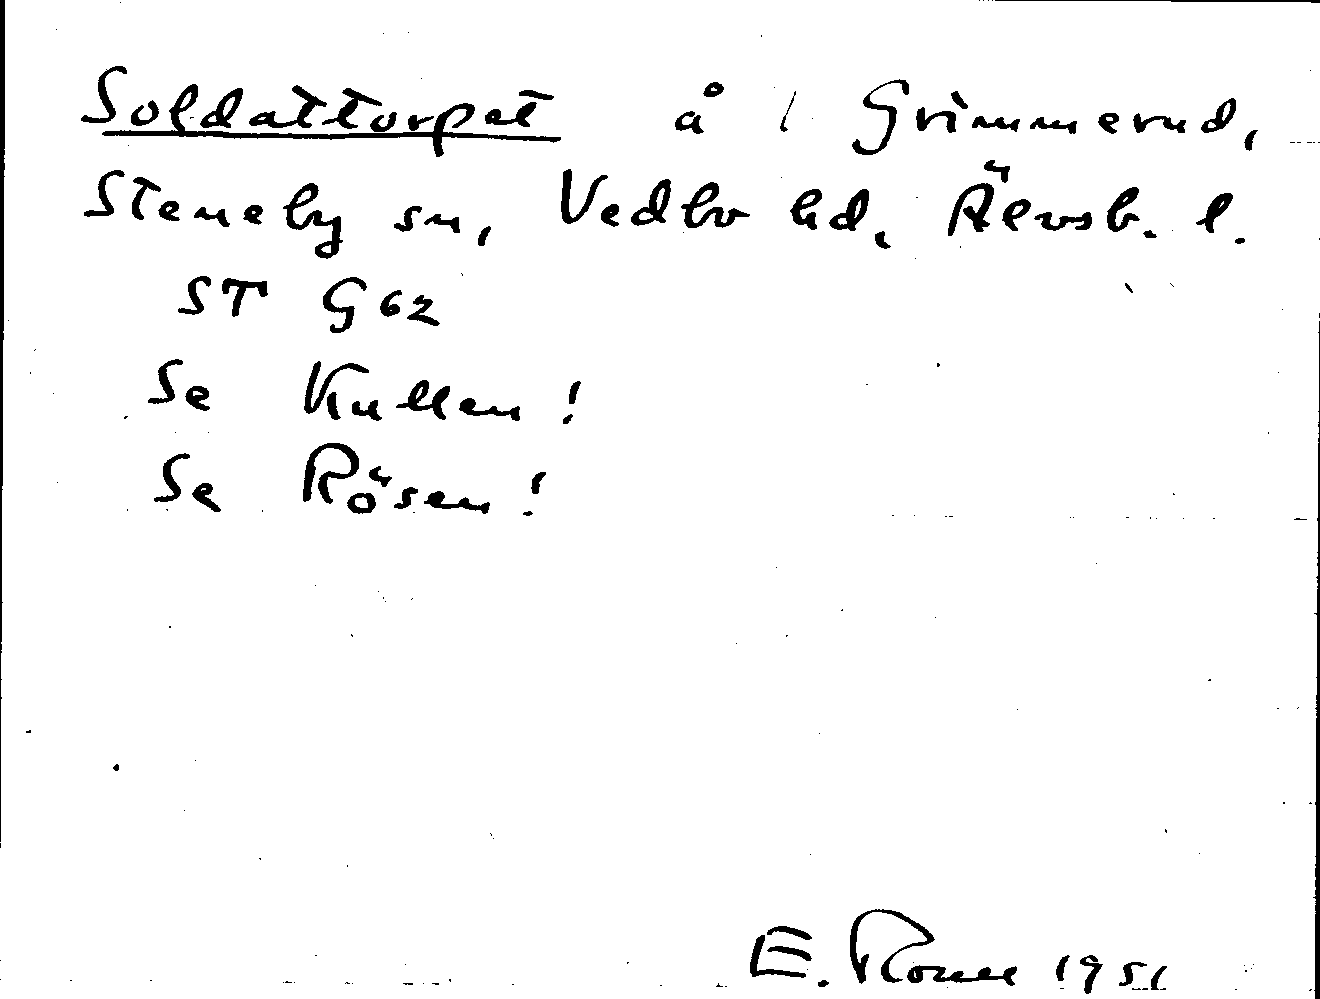 Soldattorpet å / Grimmerud,
Steneby sn, Vedbo hd, Älvsb. l.
ST G 62
Se Kullen!
Se Rösen!
E. 1951